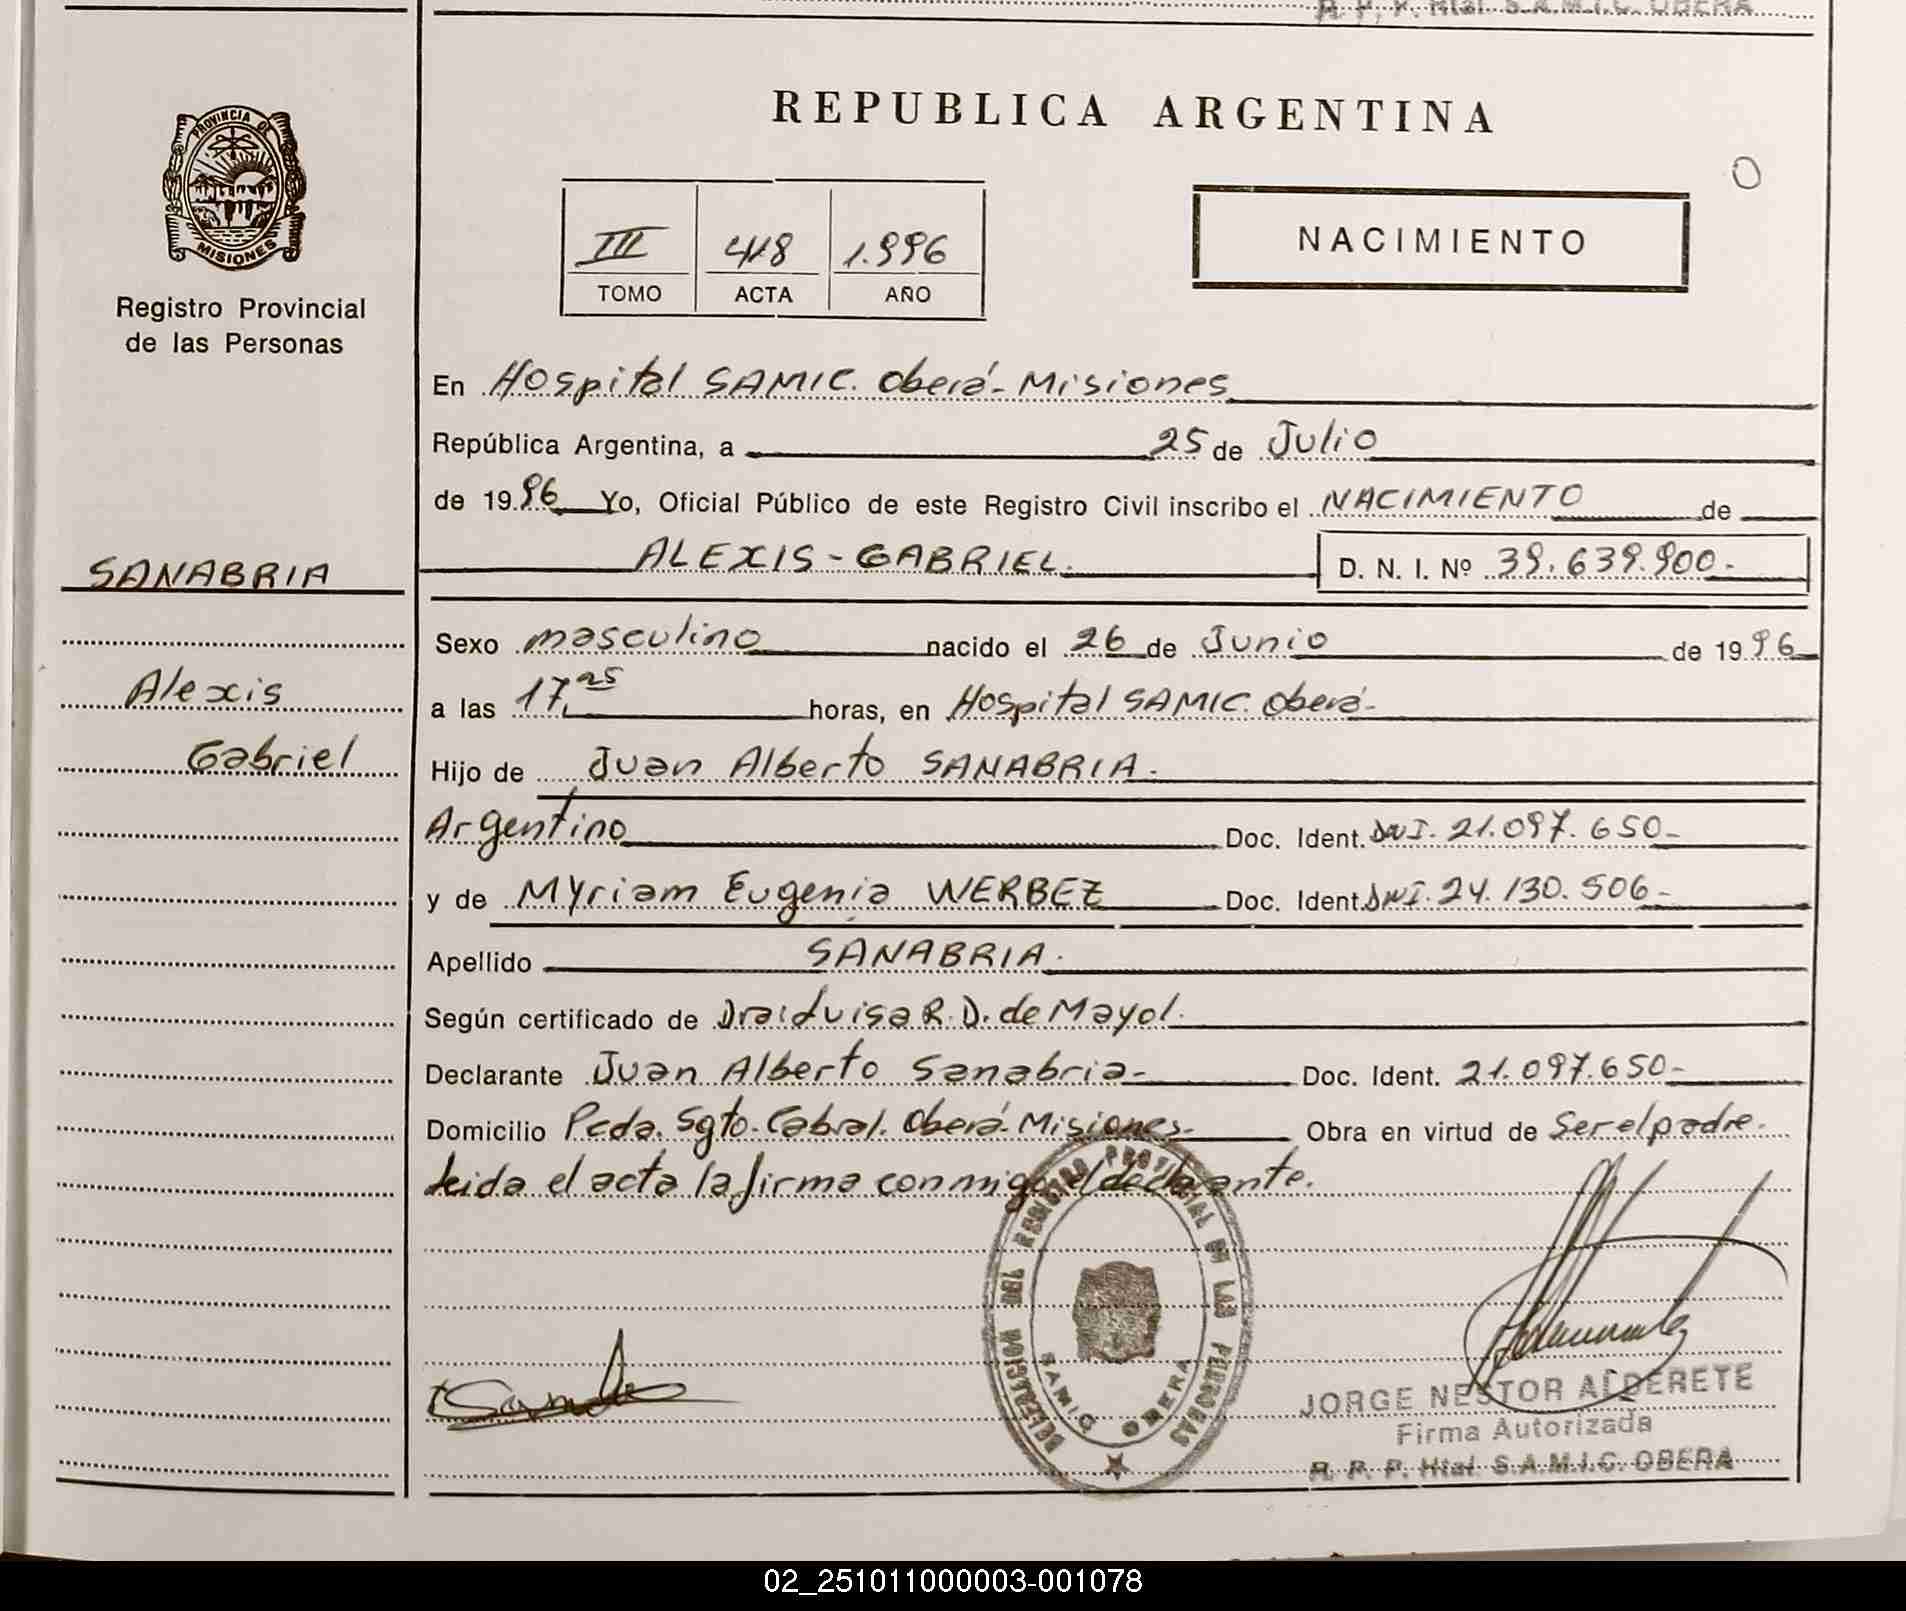 R. P. P. Htal. S.A.M.I.C. OBERA
REPUBLICA ARGENTINA
PROVINCIA DE
MISIONES
Registro Provincial
de las Personas
III 418 1.996
TOMO ACTA AÑO
NACIMIENTO
En Hospital SAMIC. Oberá - Misiones
República Argentina, a 25 de Julio
de 1996 Yo, Oficial Público de este Registro Civil inscribo el NACIMIENTO de
SANABRIA
ALEXIS - GABRIEL. D. N. I. Nº 39.639.900.-
Sexo masculino nacido el 26 de Junio de 1996
Alexis
a las 17,25 horas, en Hospital SAMIC. Oberá-
Gabriel
Hijo de Juan Alberto SANABRIA.
Argentino Doc. Ident. DNI. 21.097.650-
y de Myriam Eugenia WERBEZ Doc. Ident. DNI. 24.130.506-
Apellido SANABRIA.
Según certificado de Dra: Luisa R. D. de Mayol.
Declarante Juan Alberto Sanabria- Doc. Ident. 21.097.650-
Domicilio Pcda. Sgto. Cabral. Oberá-Misiones- Obra en virtud de Ser el padre.
Leida el acta la firma conmigo el declarante.
DELEGACION DEL REGISTRO PROVINCIAL DE LAS PERSONAS
SAMIC OBERA
JORGE NESTOR ALDERETE
Firma Autorizada
R. P. P. Htal. S.A.M.I.C. OBERA
02_251011000003-001078